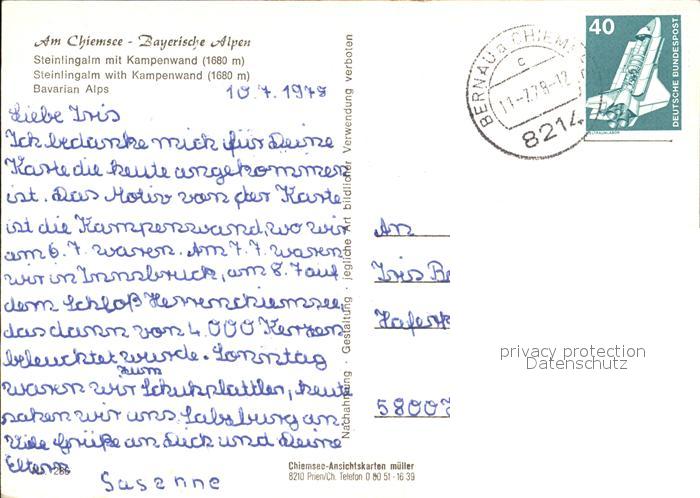 Am Chiemsee - Bayerische Alpen
Steinlingalm mit Kampenwand (1680 m)
Steinlingalm with Kampenwand (1680 m)
Bavarian Alps
10.7.1978
Liebe Iris
Ich bedanke mich für Deine
Karte die heute angekommen
ist. Das Motiv von der Karte
ist die Kampenwand, wo wir
am 6.7. waren. Am 7.7. waren
wir in Innsbruck, am 8.7 auf
dem Schloß Herrenchiemsee,
das dann von 4.000 Kerzen
beleuchtet wurde. Sonntag
waren wir zum Schuhplattler, heute
sahen wir uns Salzburg an.
Viele Grüße an Dich und Deine
Eltern
Susanne
Nachahmung · Gestaltung · jegliche Art bildlicher Verwendung verboten
Chiemsee-Ansichtskarten müller
8210 Prien/Ch. Telefon 0 80 51 - 16 39
BERNAU a CHIEMSEE
c
8214
40
DEUTSCHE BUNDESPOST
WELTRAUMLABOR
An
Iris Be
5800
privacy protection
Datenschutz